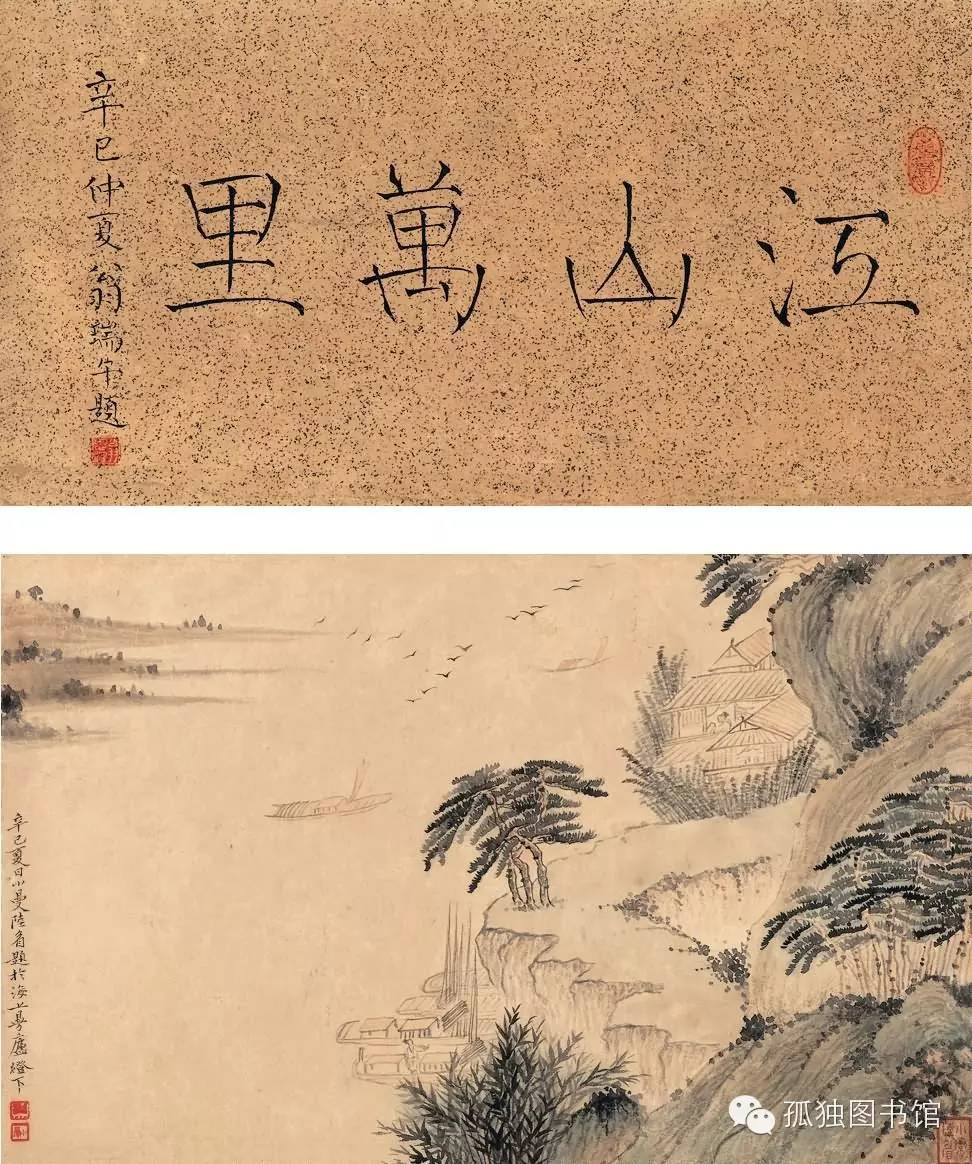 江山萬里
辛巳仲夏翁瑞午題
辛巳夏日小曼陸眉題於海上曼廬燈下
孤独图书馆